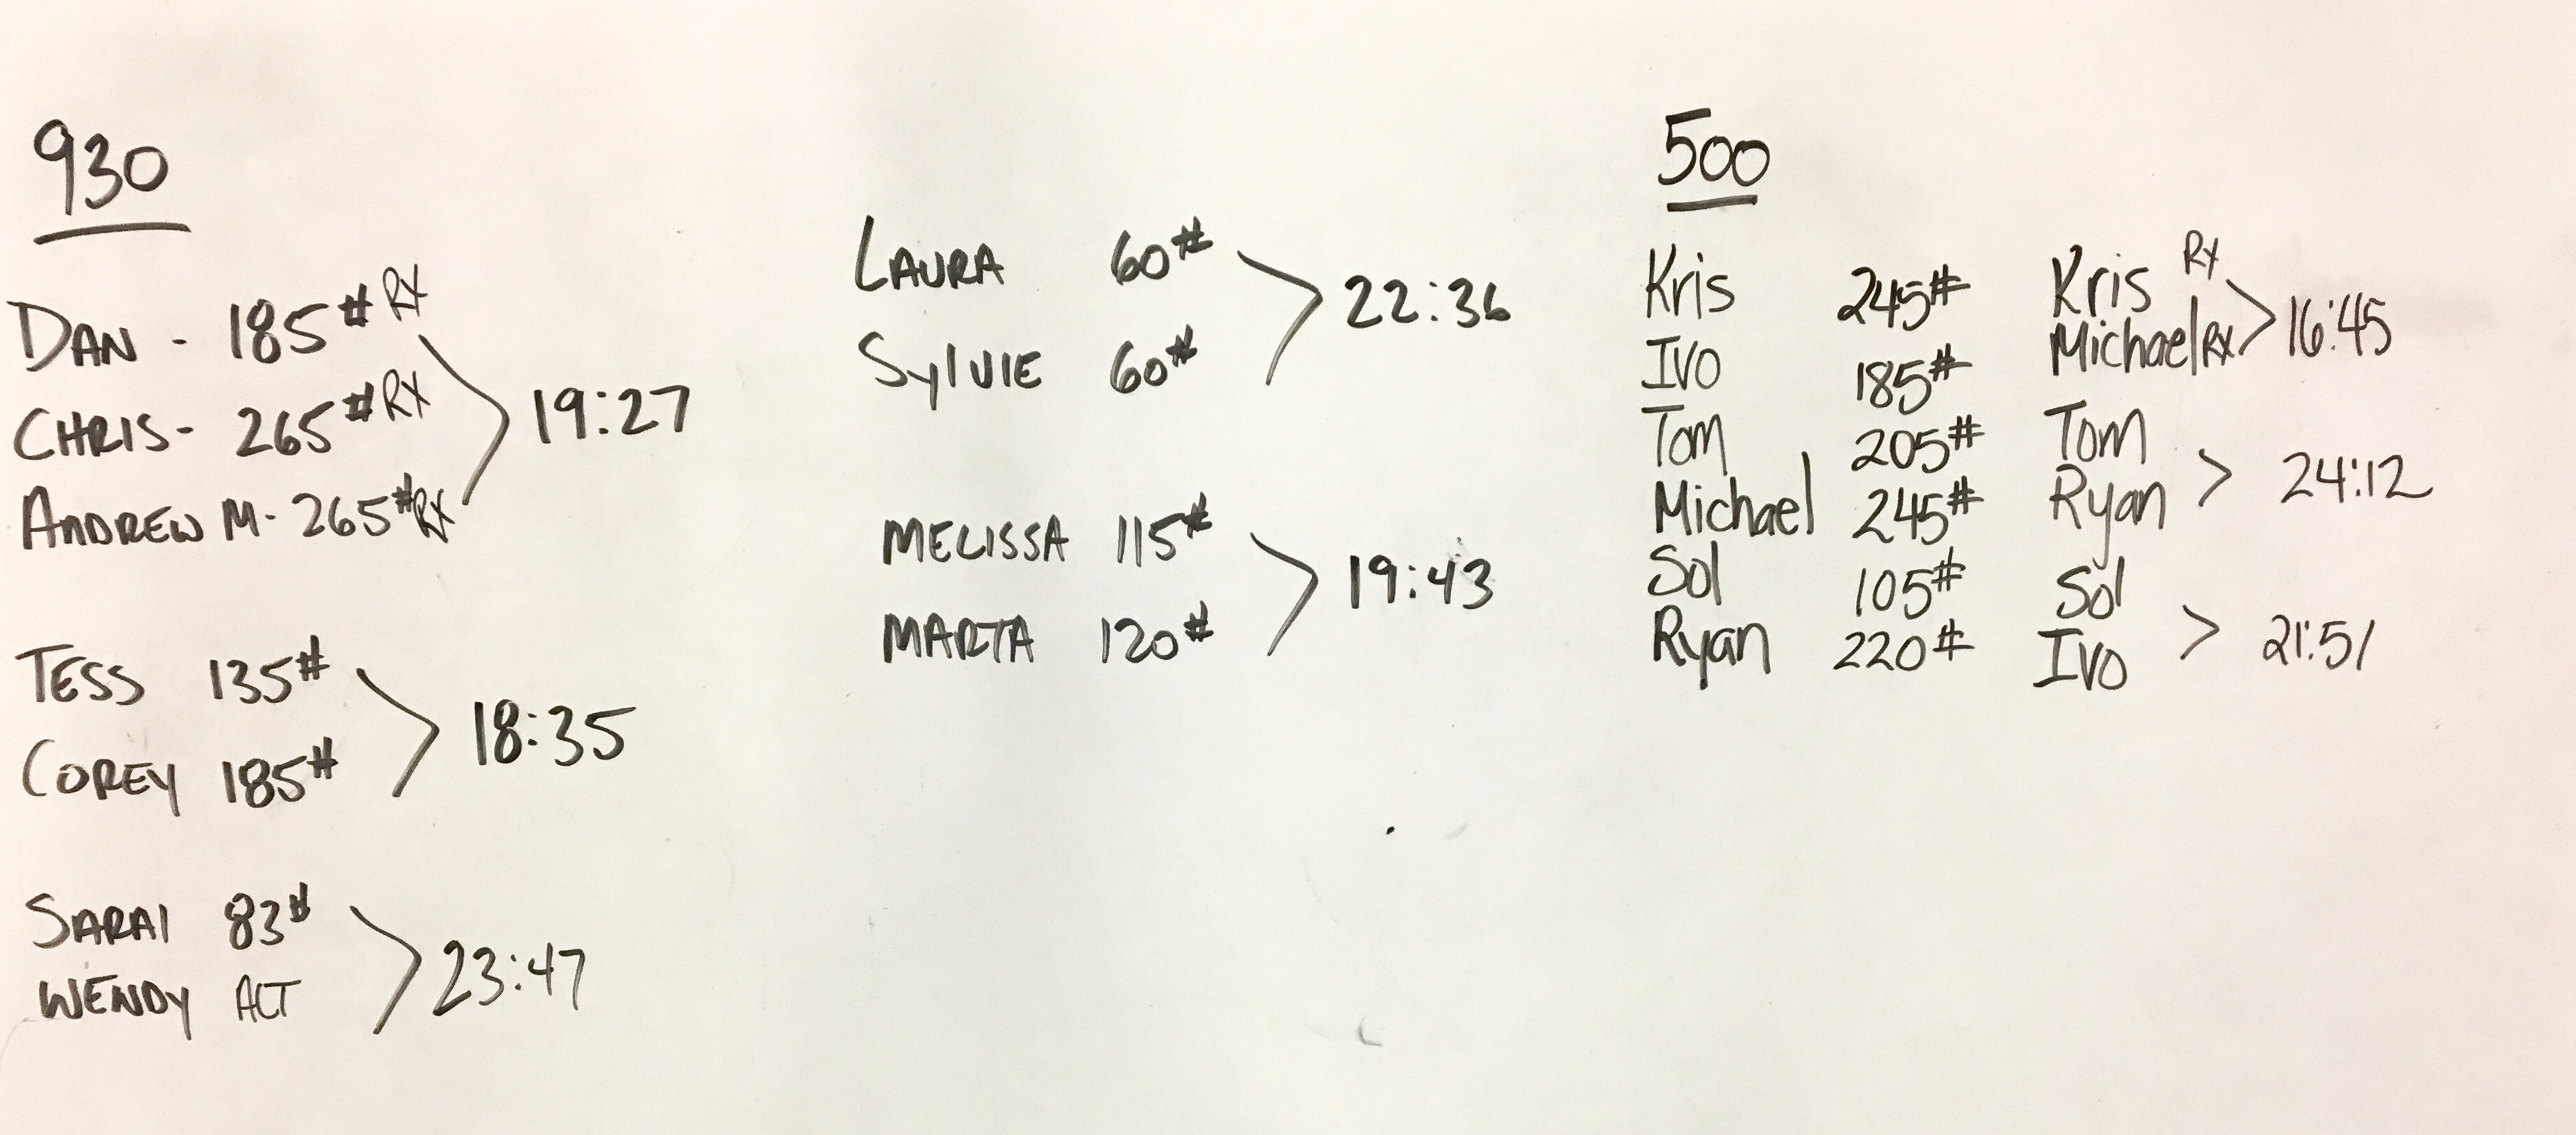 930
DAN - 185# RX
CHRIS - 265# RX
19:27
ANDREW M - 265# RX
TESS 135#
18:35
COREY 185#
SARAI 83#
23:47
WENDY ALT
LAURA 60#
22:36
SYLVIE 60#
MELISSA 115#
19:43
MARTA 120#
500
Kris 245#
Ivo 185#
Tom 205#
Michael 245#
Sol 105#
Ryan 220#
Kris RX
Michael RX > 16:45
Tom
Ryan > 24:12
Sol
Ivo > 21:51